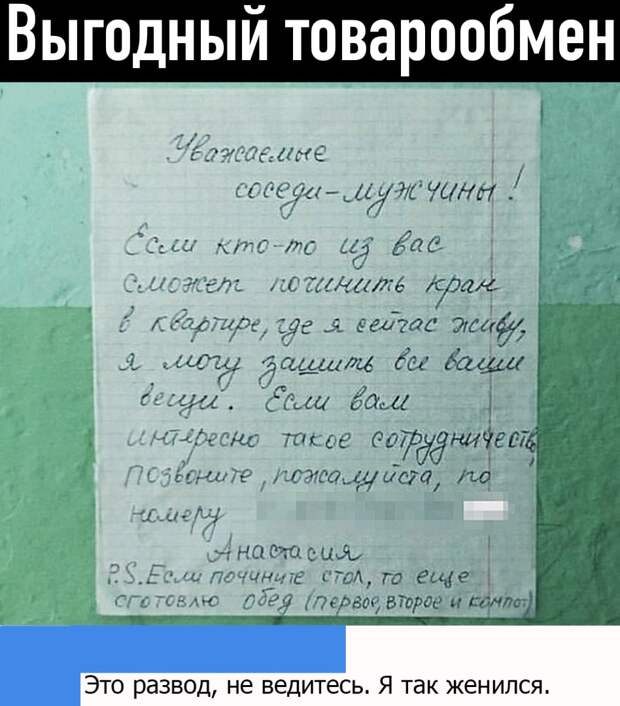 Выгодный товарообмен
Уважаемые
соседи-мужчины!
Если кто-то из вас
сможет починить кран
в квартире, где я сейчас живу,
я могу зашить все ваши
вещи. Если вам
интересно такое сотрудничеств
позвоните, пожалуйста, по
номеру
Анастасия
P.S. Если почините стол, то еще
сготовлю обед (первое, второе и компот)
Это развод, не ведитесь. Я так женился.